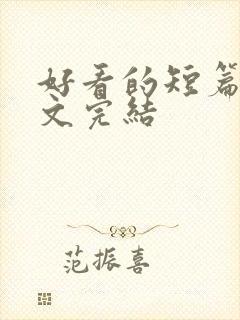 好看的短篇
文完結
范振喜